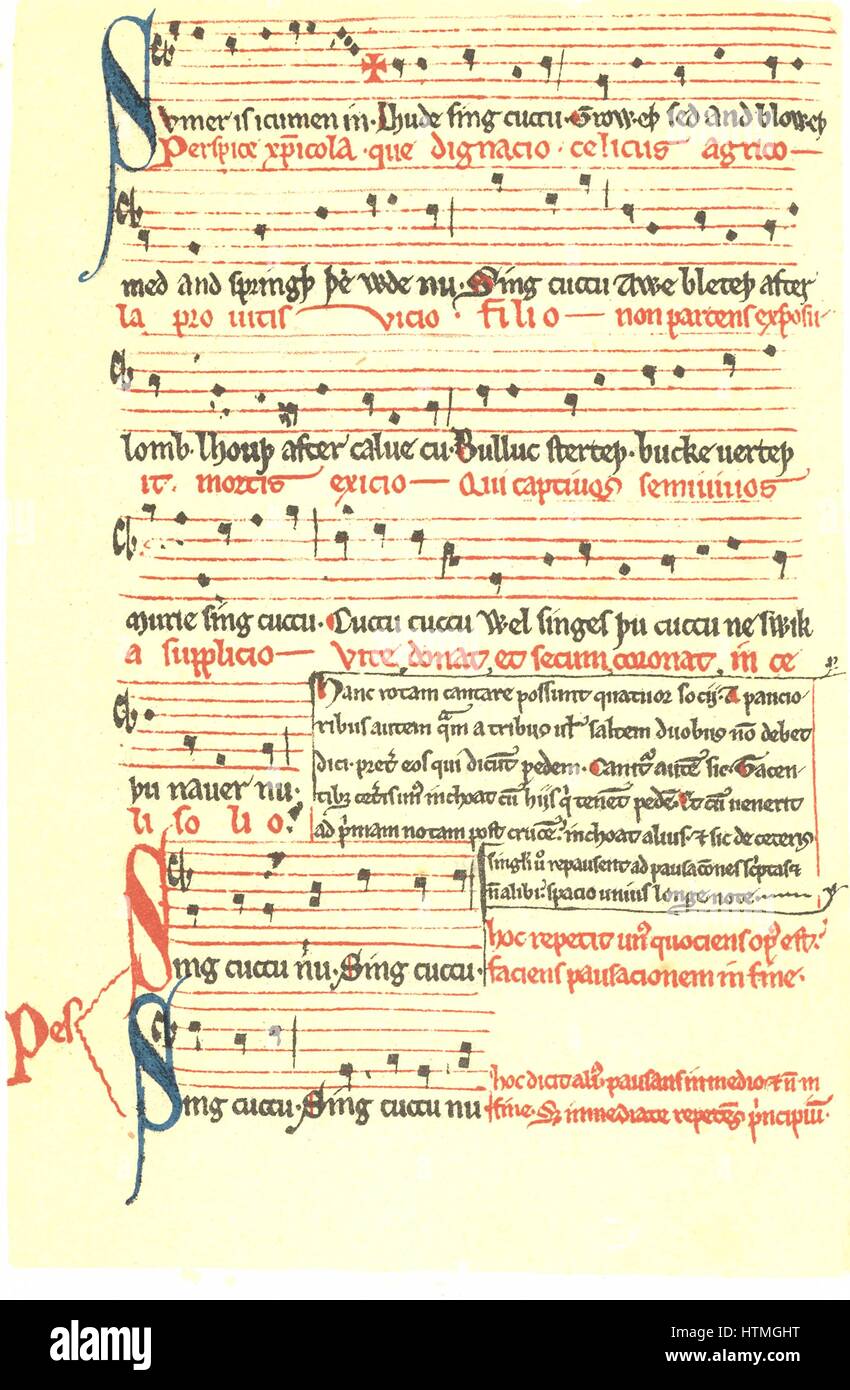 Sumer is icumen in. Lhude sing cuccu. Groweþ sed and bloweþ
Perspice xp̅icola. que dignacio. celicus agrico—
med and springþ þe wde nu. Sing cuccu Awe bleteþ after
la pro uitis vicio. filio— non parcens exposu-
lomb. lhouþ after calue cu. Bulluc sterteþ. bucke uerteþ
it. mortis exicio— Qui captiuos semiuiuos
murie sing cuccu. Cuccu cuccu Wel singes þu cuccu ne swik
a supplicio— Vite donat, et secum coronat, in ce
þu nauer nu.
li so li o.
Hanc rotam cantare possunt quatuor socij. A paucio-
ribus autem qͣm a tribus ul̕ saltem duobus n̅o debet
dici. pret̕ eos qui dicu̅t pedem. Cantat̕ aute̅ sic. Tacen-
tibꝫ cet̕is un̕ inchoat cu̅ hijs qͥ tene̅t pede̅. Et cu̅ uenerit
ad pͥmam notam post cruce̅. inchoat alius. ⁊ sic de ceteris
singli u̕ repausent ad pausac̅ones sc̕ptas ⁊
n̅ alibi. spacio unius longe note.
Sing cuccu nu. Sing cuccu.
hoc repetit un̕ quociens op̕ est.
faciens pausacionem in fine.
Pes
Sing cuccu. Sing cuccu nu
hoc dicit ali̕. pausans in medio ⁊ n̅ in
fine. Sꝫ immediate repetens pͥncipiu̅.
alamy
Image ID: HTMGHT
www.alamy.com